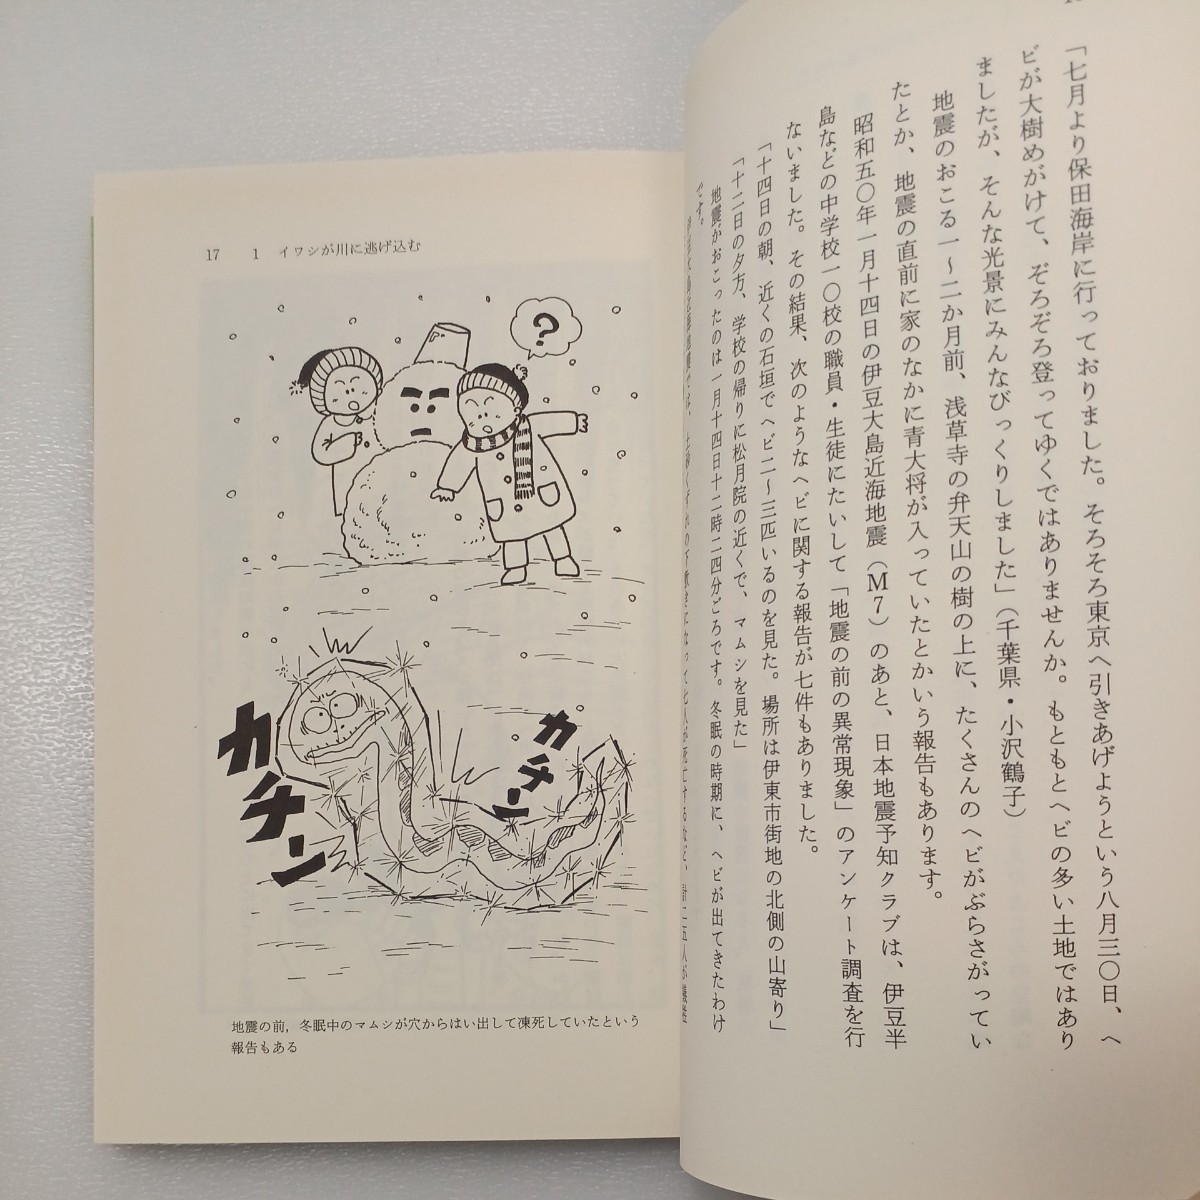 「七月より保田海岸に行っておりました。そろそろ東京へ引きあげようという八月三〇日、ヘ
ビが大樹めがけて、ぞろぞろ登ってゆくではありませんか。もともとヘビの多い土地ではあり
ましたが、そんな光景にみんなびっくりしました」（千葉県・小沢鶴子）
地震のおこる一〜二か月前、浅草寺の弁天山の樹の上に、たくさんのヘビがぶらさがってい
たとか、地震の直前に家のなかに青大将が入っていたとかいう報告もあります。
昭和五〇年一月十四日の伊豆大島近海地震（M７）のあと、日本地震予知クラブは、伊豆半
島などの中学校一〇校の職員・生徒にたいして「地震の前の異常現象」のアンケート調査を行
ないました。その結果、次のようなヘビに関する報告が七件もありました。
「十四日の朝、近くの石垣でヘビ二〜三匹いるのを見た。場所は伊東市街地の北側の山寄り」
「十二日の夕方、学校の帰りに松月院の近くで、マムシを見た」
地震がおこったのは一月十四日十二時二四分ごろです。冬眠の時期に、ヘビが出てきたわけ
です。
17 1 イワシが川に逃げ込む
?
カチン
カチーン
地震の前，冬眠中のマムシが穴からはい出して凍死していたという
報告もある